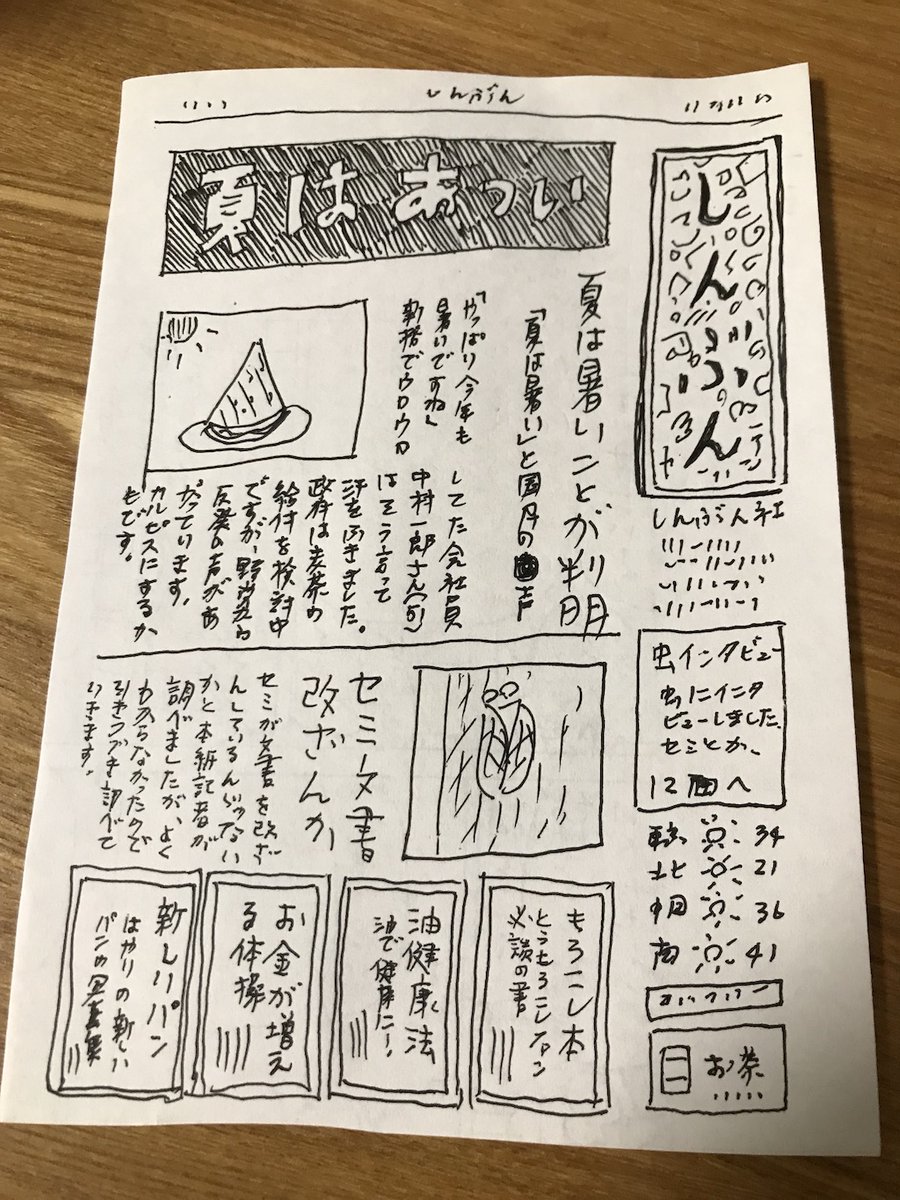 しんぶん
しんぶん
夏はあつい
夏は暑いことが判明
「夏は暑い」と国民の声
「やっぱり今年も
暑いですね」
新橋でウロウロ
してた会社員
中村一郎さん
はそう言って
汗をふきました。
政府は麦茶の
給付を検討中
ですが、野党の
反発の声があ
がっています。
カルピスにするか
もです。
しんぶん社
虫インタビュー
虫にインタ
ビューしました。
セミとか。
12面へ
セミ文書
改ざんか
セミが文書を改ざ
んしているんじゃない
かと本紙記者が
調べましたが、よく
わからなかったので
引きつづき調べて
いきます。
東京 34
北 21
中 36
南 41
お茶
もろこし本
とうもろこしファン
必読の書
油健康法
油で健康に!
お金が増え
る体操
新しいパン
はやりの新しい
パンの